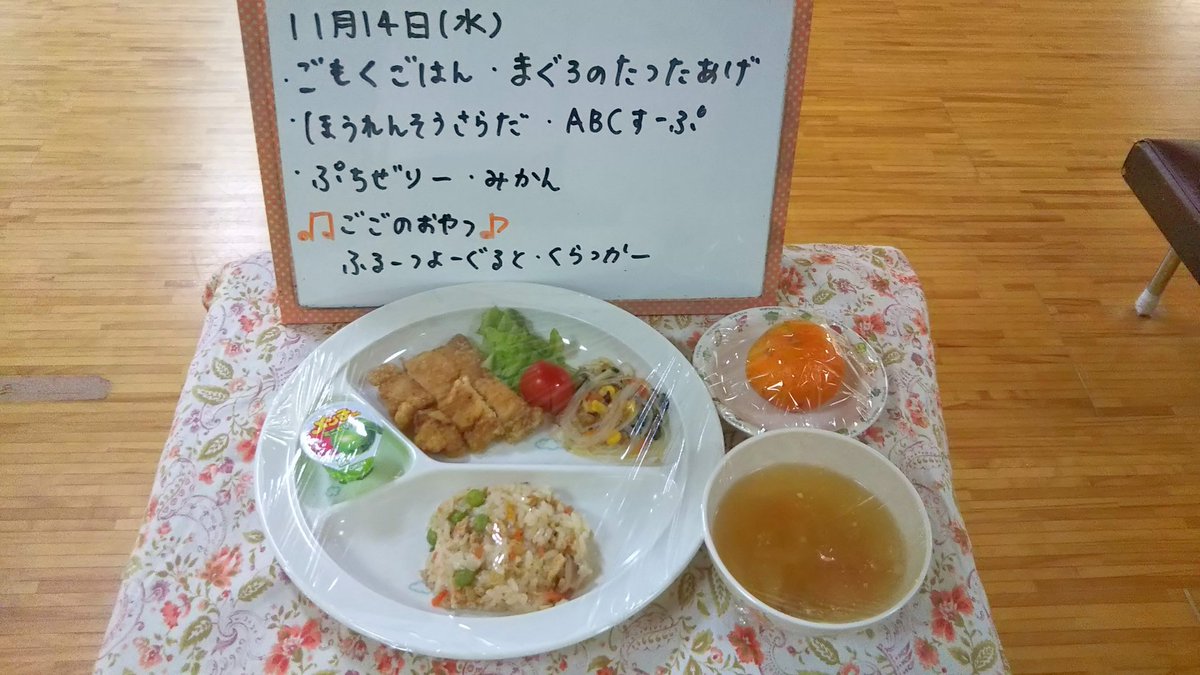 11月14日(水)
・ごもくごはん・まぐろのたつたあげ
・ほうれんそうさらだ・ABCすーぷ
・ぷちぜりー・みかん
♫ごごのおやつ♪
ふるーつよーぐると・くらっかー